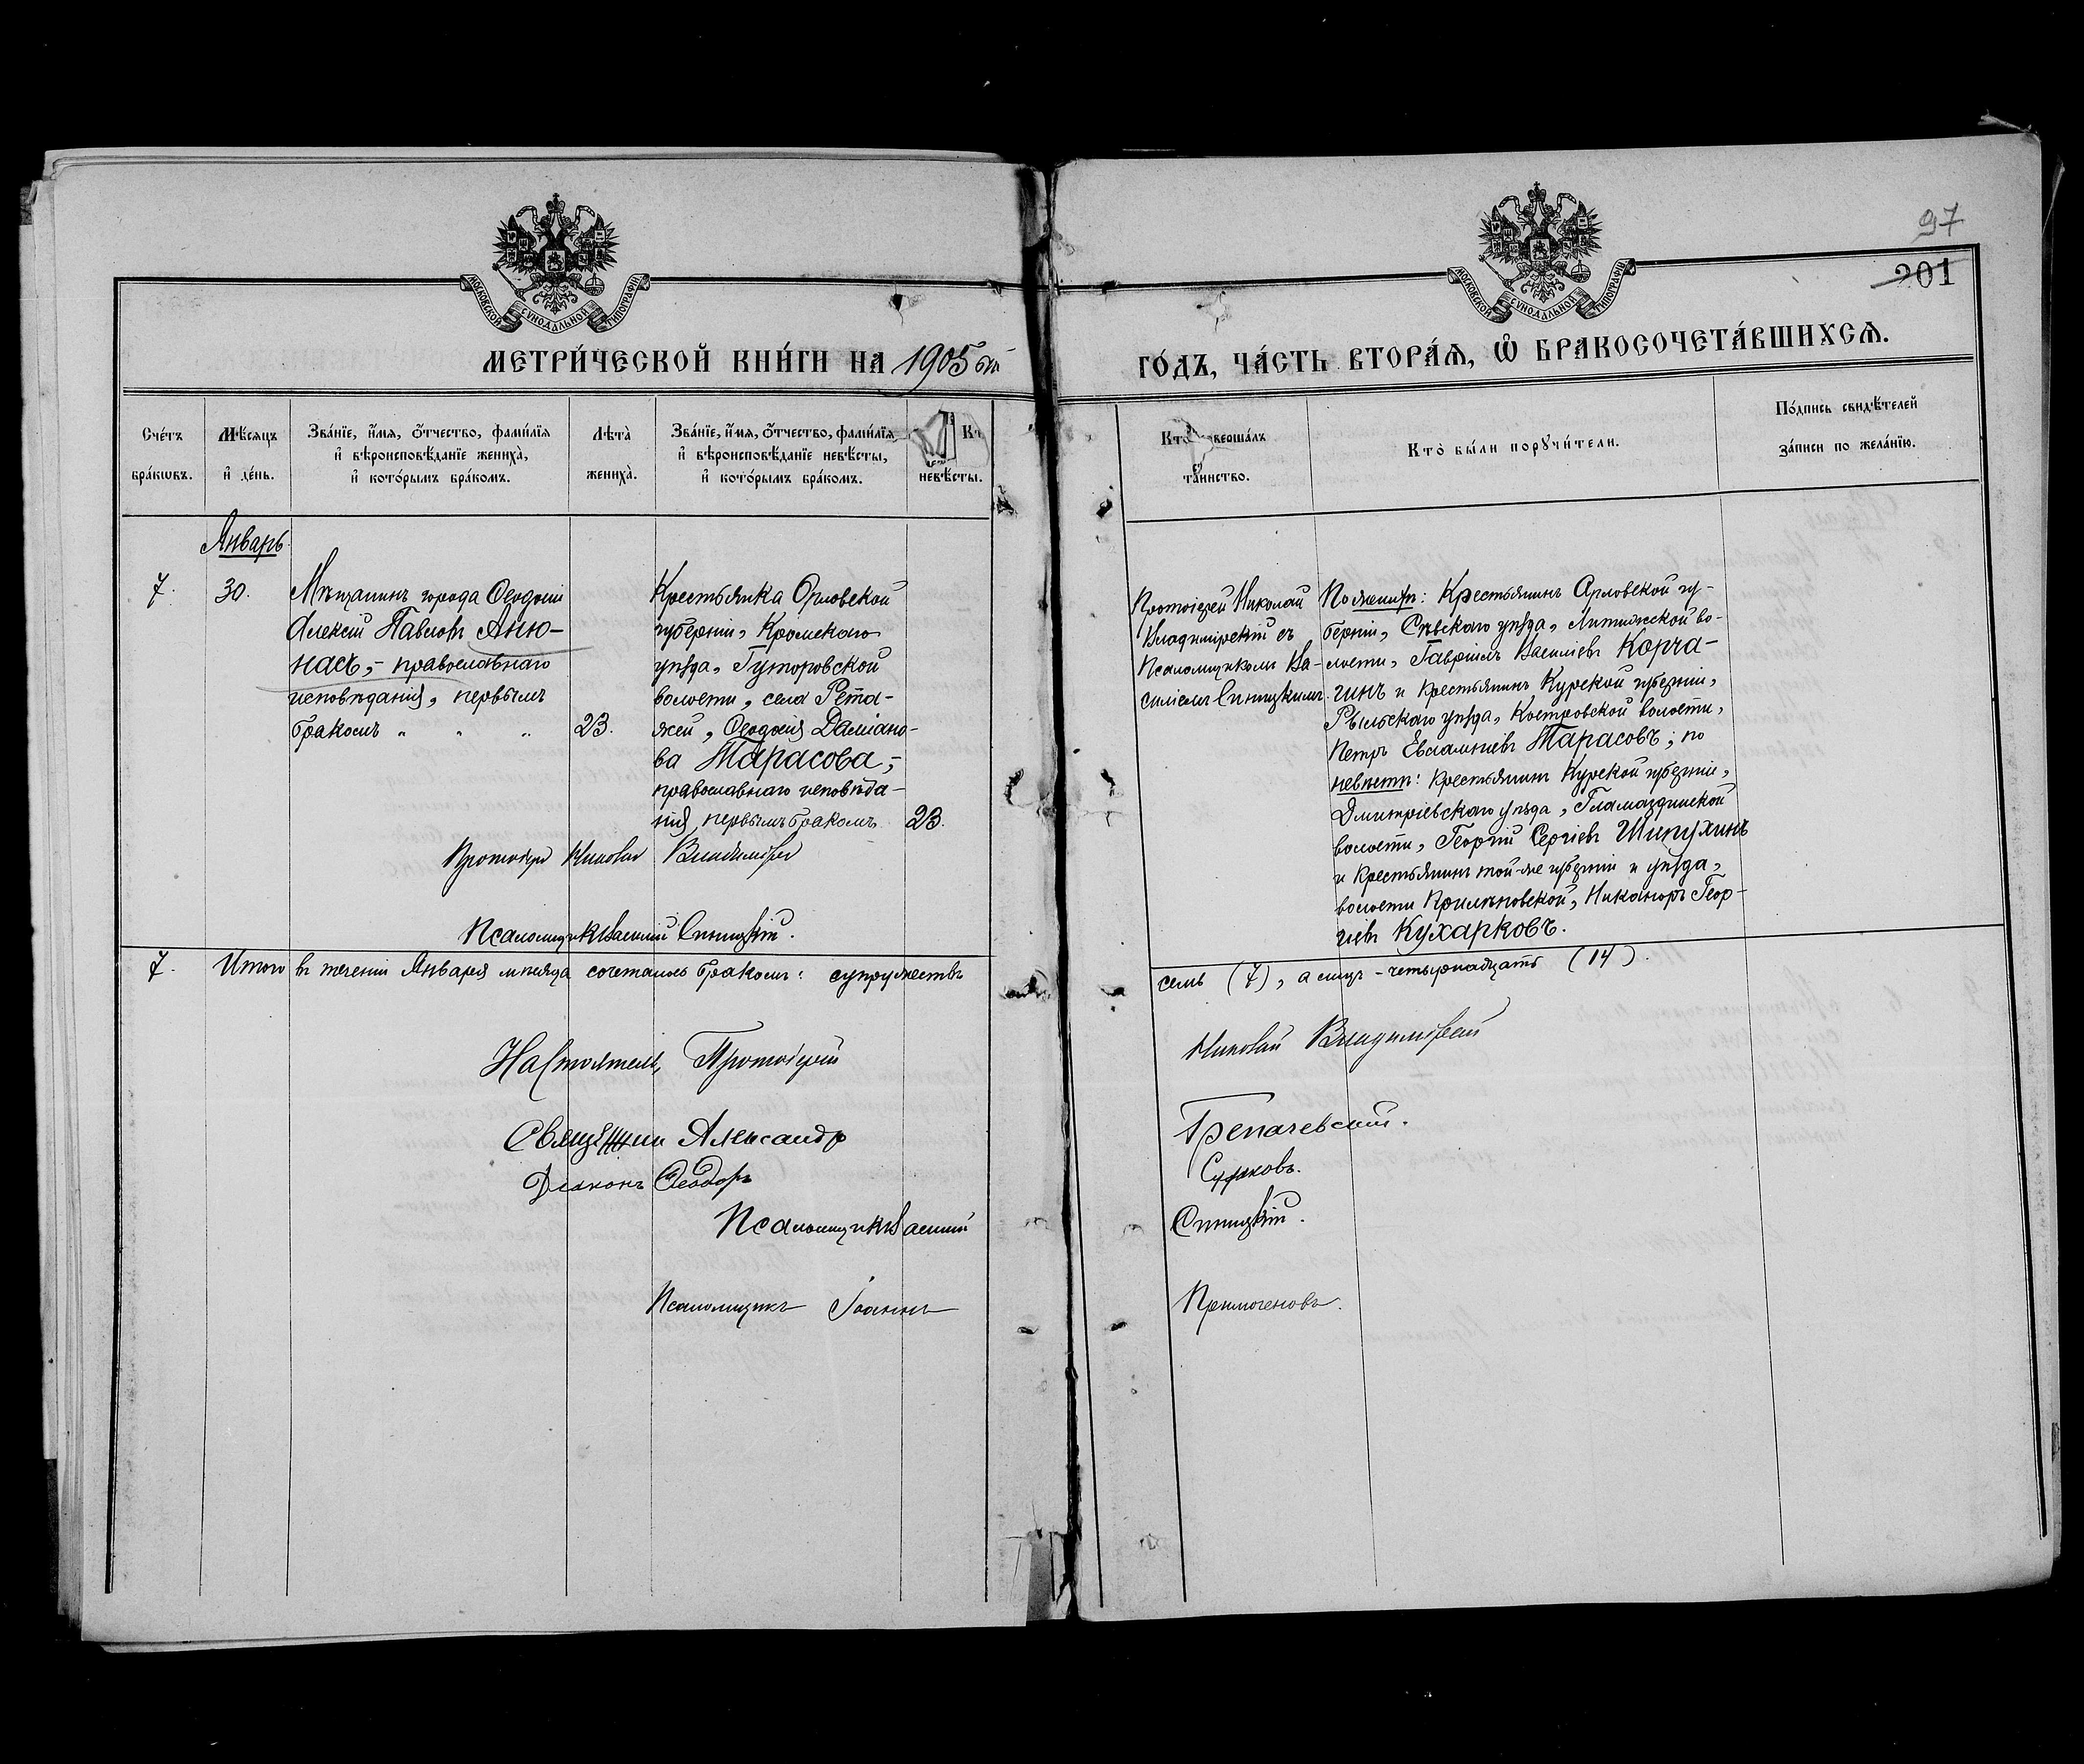 97
201
МОСКОВСКОЙ СѴНОДАЛЬНОЙ ТИПОГРАФІИ
МОСКОВСКОЙ СѴНОДАЛЬНОЙ ТИПОГРАФІИ
МЕТРИ́ЧЕСКОЙ КНИ́ГИ НА 1905 ый
ГО́ДЪ, ЧА́СТЬ ВТОРА́Ѧ, Ѽ БРАКОСОЧЕТА́ВШИХСѦ.
Сче́тъ бра́кѡвъ.
Мѣ́сяцъ и҆ де́нь.
Зва́нїе, и҆́мѧ, ѻ҆́тчество, фами́лїѧ
и҆ вѣроисповѣ́данїе жениха̀,
и҆ кото́рымъ бра́комъ.
Лѣта̀ жениха̀.
Зва́нїе, и҆́мѧ, ѻ҆́тчество, фами́лїѧ
и҆ вѣроисповѣ́данїе невѣ́сты,
и҆ кото́рымъ бра́комъ.
невѣ́сты.
Кто̀ вершáлъ
та́инство.
Кто̀ бы́ли порꙋчи́тели.
По́дпись свидѣ́телей
за́писи по жела́нїю.
Январь.
7.
30.
Мѣщанинъ города Ѳеодосіи
Алексій Павловъ Аню-
насъ,- православнаго
исповѣданія, первымъ
бракомъ " " "
23.
Крестьянка Орловской
губерніи, Кромскаго
уѣзда, Гуторовской
волости, села Рета-
жей, Ѳеодосія Даміано-
ва Тарасова,-
православнаго исповѣда-
нія, первымъ бракомъ
23.
Протоіерей Николай
Владимірскій съ
Псаломщикомъ Ва-
силіемъ Синицкимъ.
По женихѣ: Крестьянинъ Орловской гу-
берніи, Сѣвскаго уѣзда, Литижской во-
лости, Гавріилъ Василіевъ Корча-
гинъ и крестьянинъ Курской губерніи,
Рыльскаго уѣзда, Костровской волости,
Петръ Евлампіевъ Тарасовъ; по
невѣстѣ: крестьянинъ Курской губерніи,
Дмитріевскаго уѣзда, Гламаздинской
волости, Георгій Сергіевъ Шипухинъ
и крестьянинъ той-же губерніи и уѣзда,
волости Прилѣповской, Никаноръ Геор-
гіевъ Кухарковъ.
Протоіерей Николай Владимірскій
Псаломщикъ Василий Синицкій.
7. Итого въ теченіи Января мѣсяца сочеталось бракомъ: супружествъ
семь (7), а лицъ - четырнадцать (14).
Настоятель, Протоіерей Николай Владимірскій
Священник Александръ Трепачевский.
Діаконъ Ѳеодоръ Сурковъ.
Псаломщикъ Василий Синицкій.
Псаломщикъ Іоаннъ